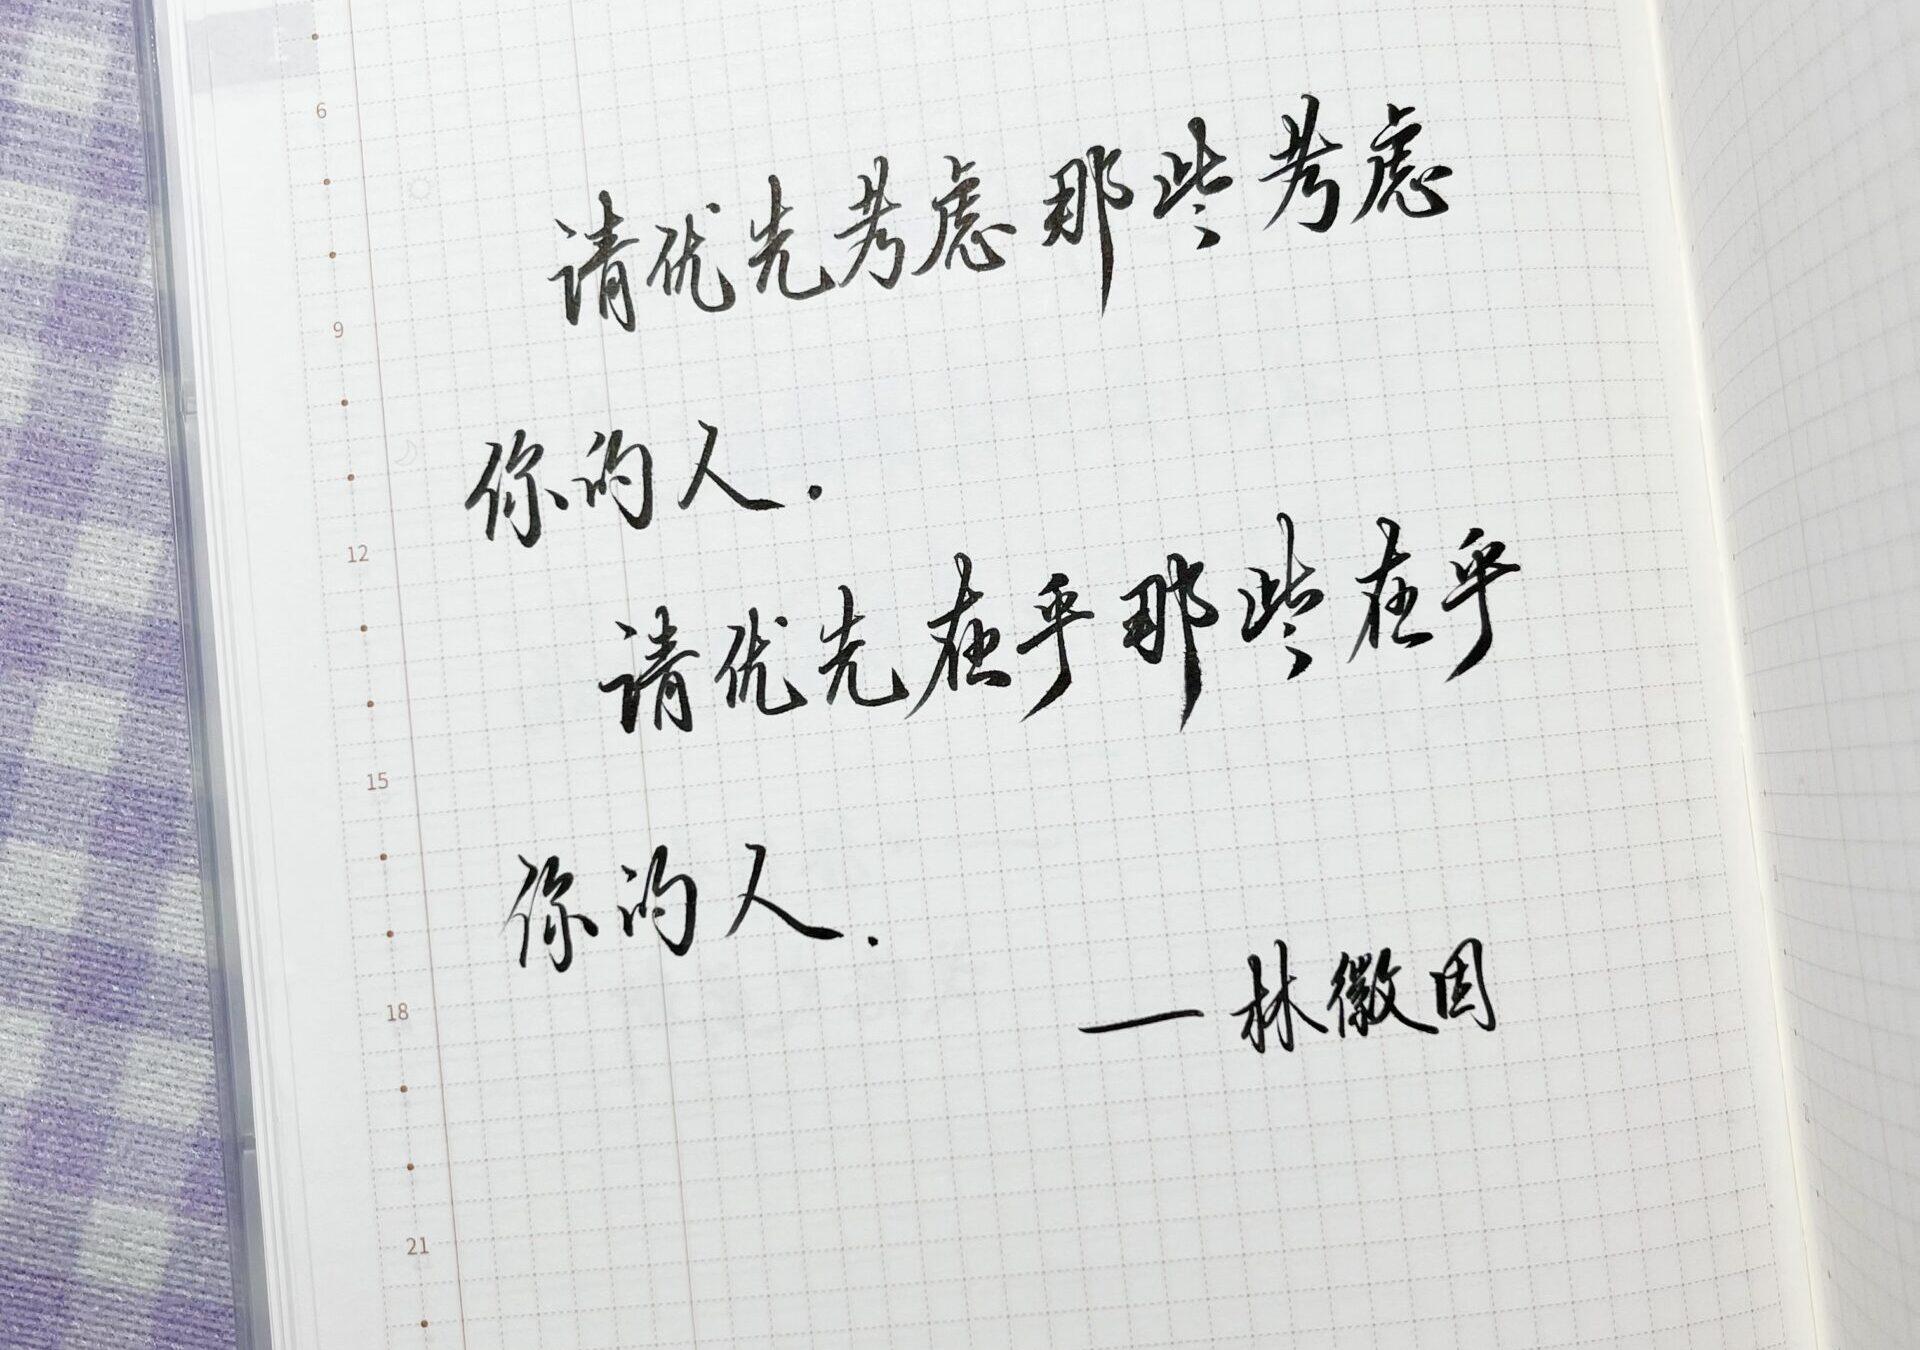 6
9
12
15
18
21
请优先考虑那些考虑
你的人.
请优先在乎那些在乎
你的人.
—林徽因